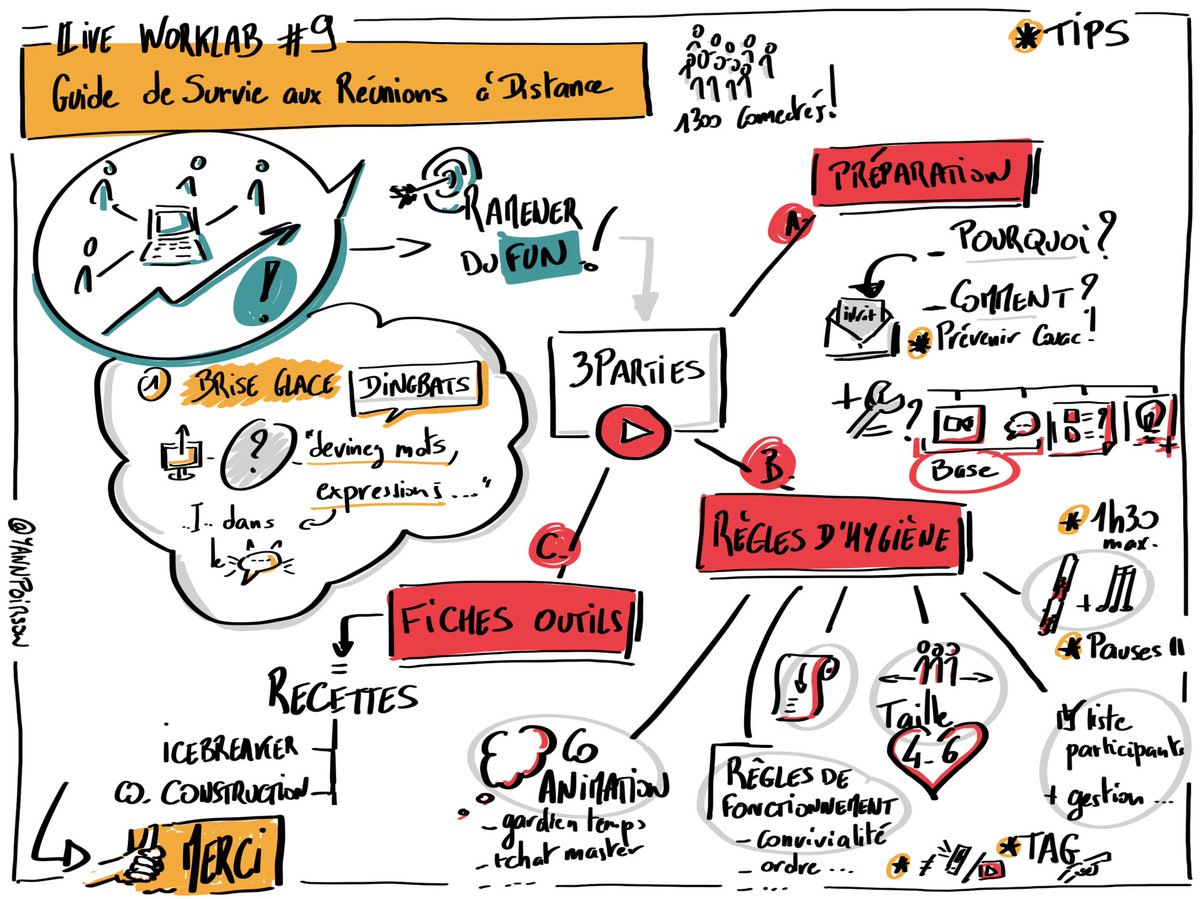 Live WORKLAB #9
Guide de Survie aux Réunions à Distance
1300 Connectés!
* TIPS
RAMENER
DU FUN!
!
1 BRISE GLACE DINGBATS
?
"devinez mots,
expressions..."
dans
le
3 PARTIES
A-
PRÉPARATION
- POURQUOI?
- COMMENT?
* Prévenir Couac!
+ ?
Base
B-
RÈGLES D'HYGIÈNE
* 1h30
max.
+
* Pauses
Taille
4-6
liste
participants
+ gestion ...
RÈGLES DE
FONCTIONNEMENT
- convivialité
ordre ...
CO
ANIMATION
- gardien temps
- tchat master
* ≠ /
* TAG
C-
FICHES OUTILS
=
RECETTES
ICEBREAKER
CO-CONSTRUCTION
MERCI
@YANNPOIRSON